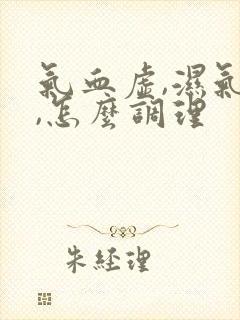 氣血虛,濕氣
,怎麼調理
朱經理